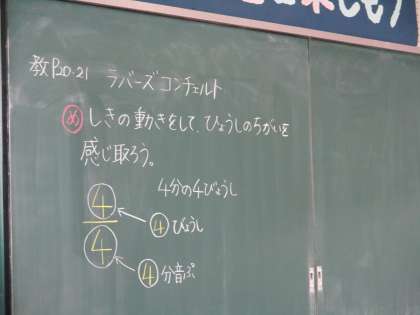 教P20.21 ラバーズコンチェルト
め しきの動きをして、ひょうしのちがいを
感じ取ろう。
4分の4びょうし
4
4
4 びょうし
4 分音ぷ